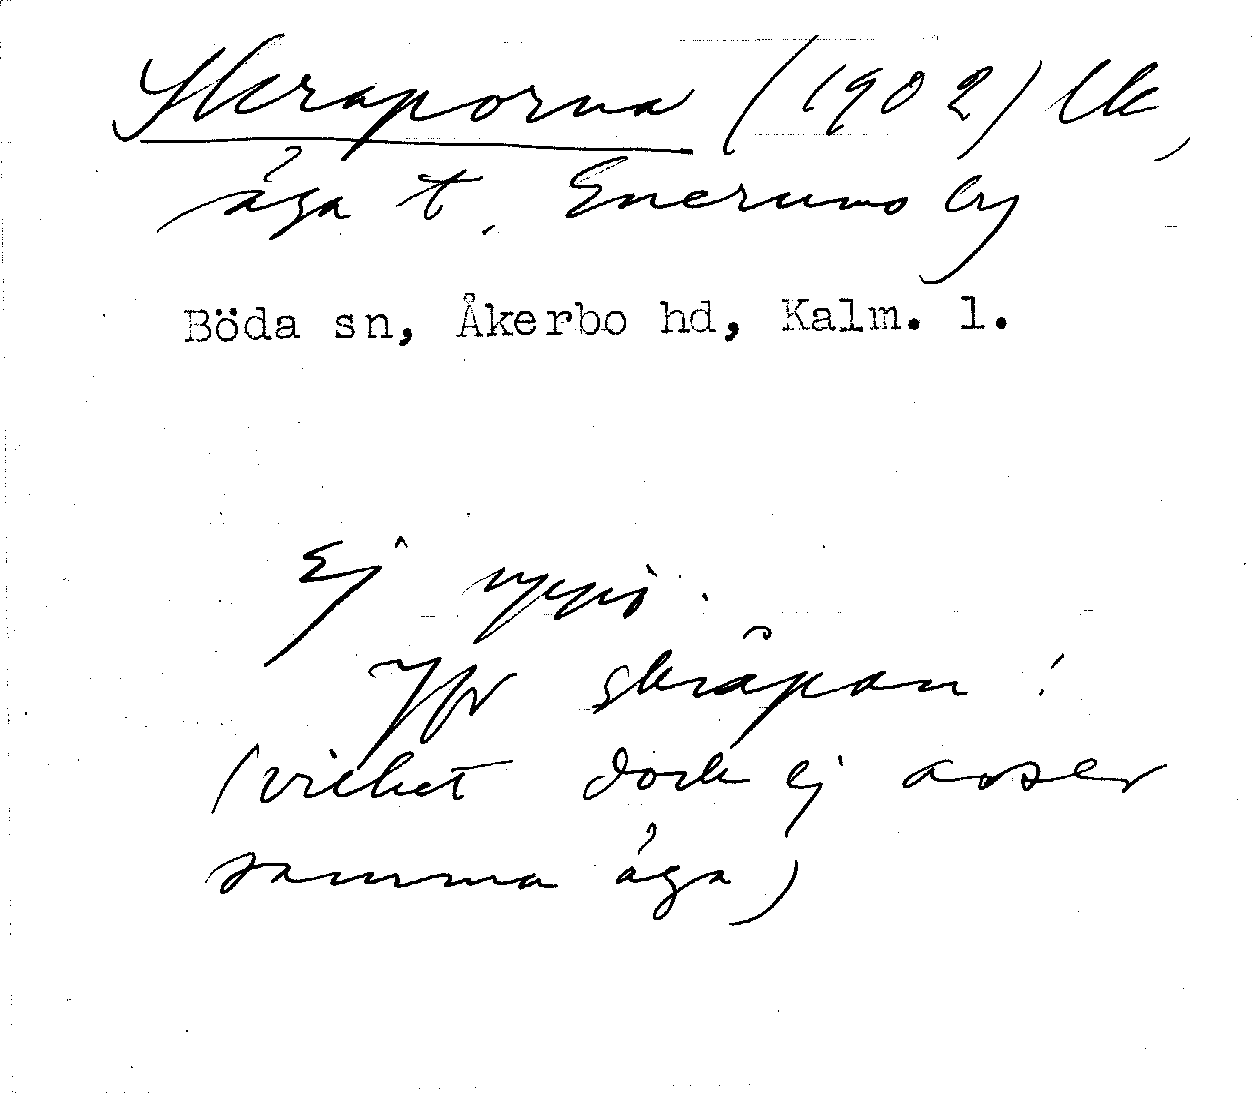 Skraporna (1902) lk,
äga t. Enerums by
Böda sn, Åkerbo hd, Kalm. l.
Ej uppt.
Jfr skrāpan !
(vilket dock ej avser
samma äga)